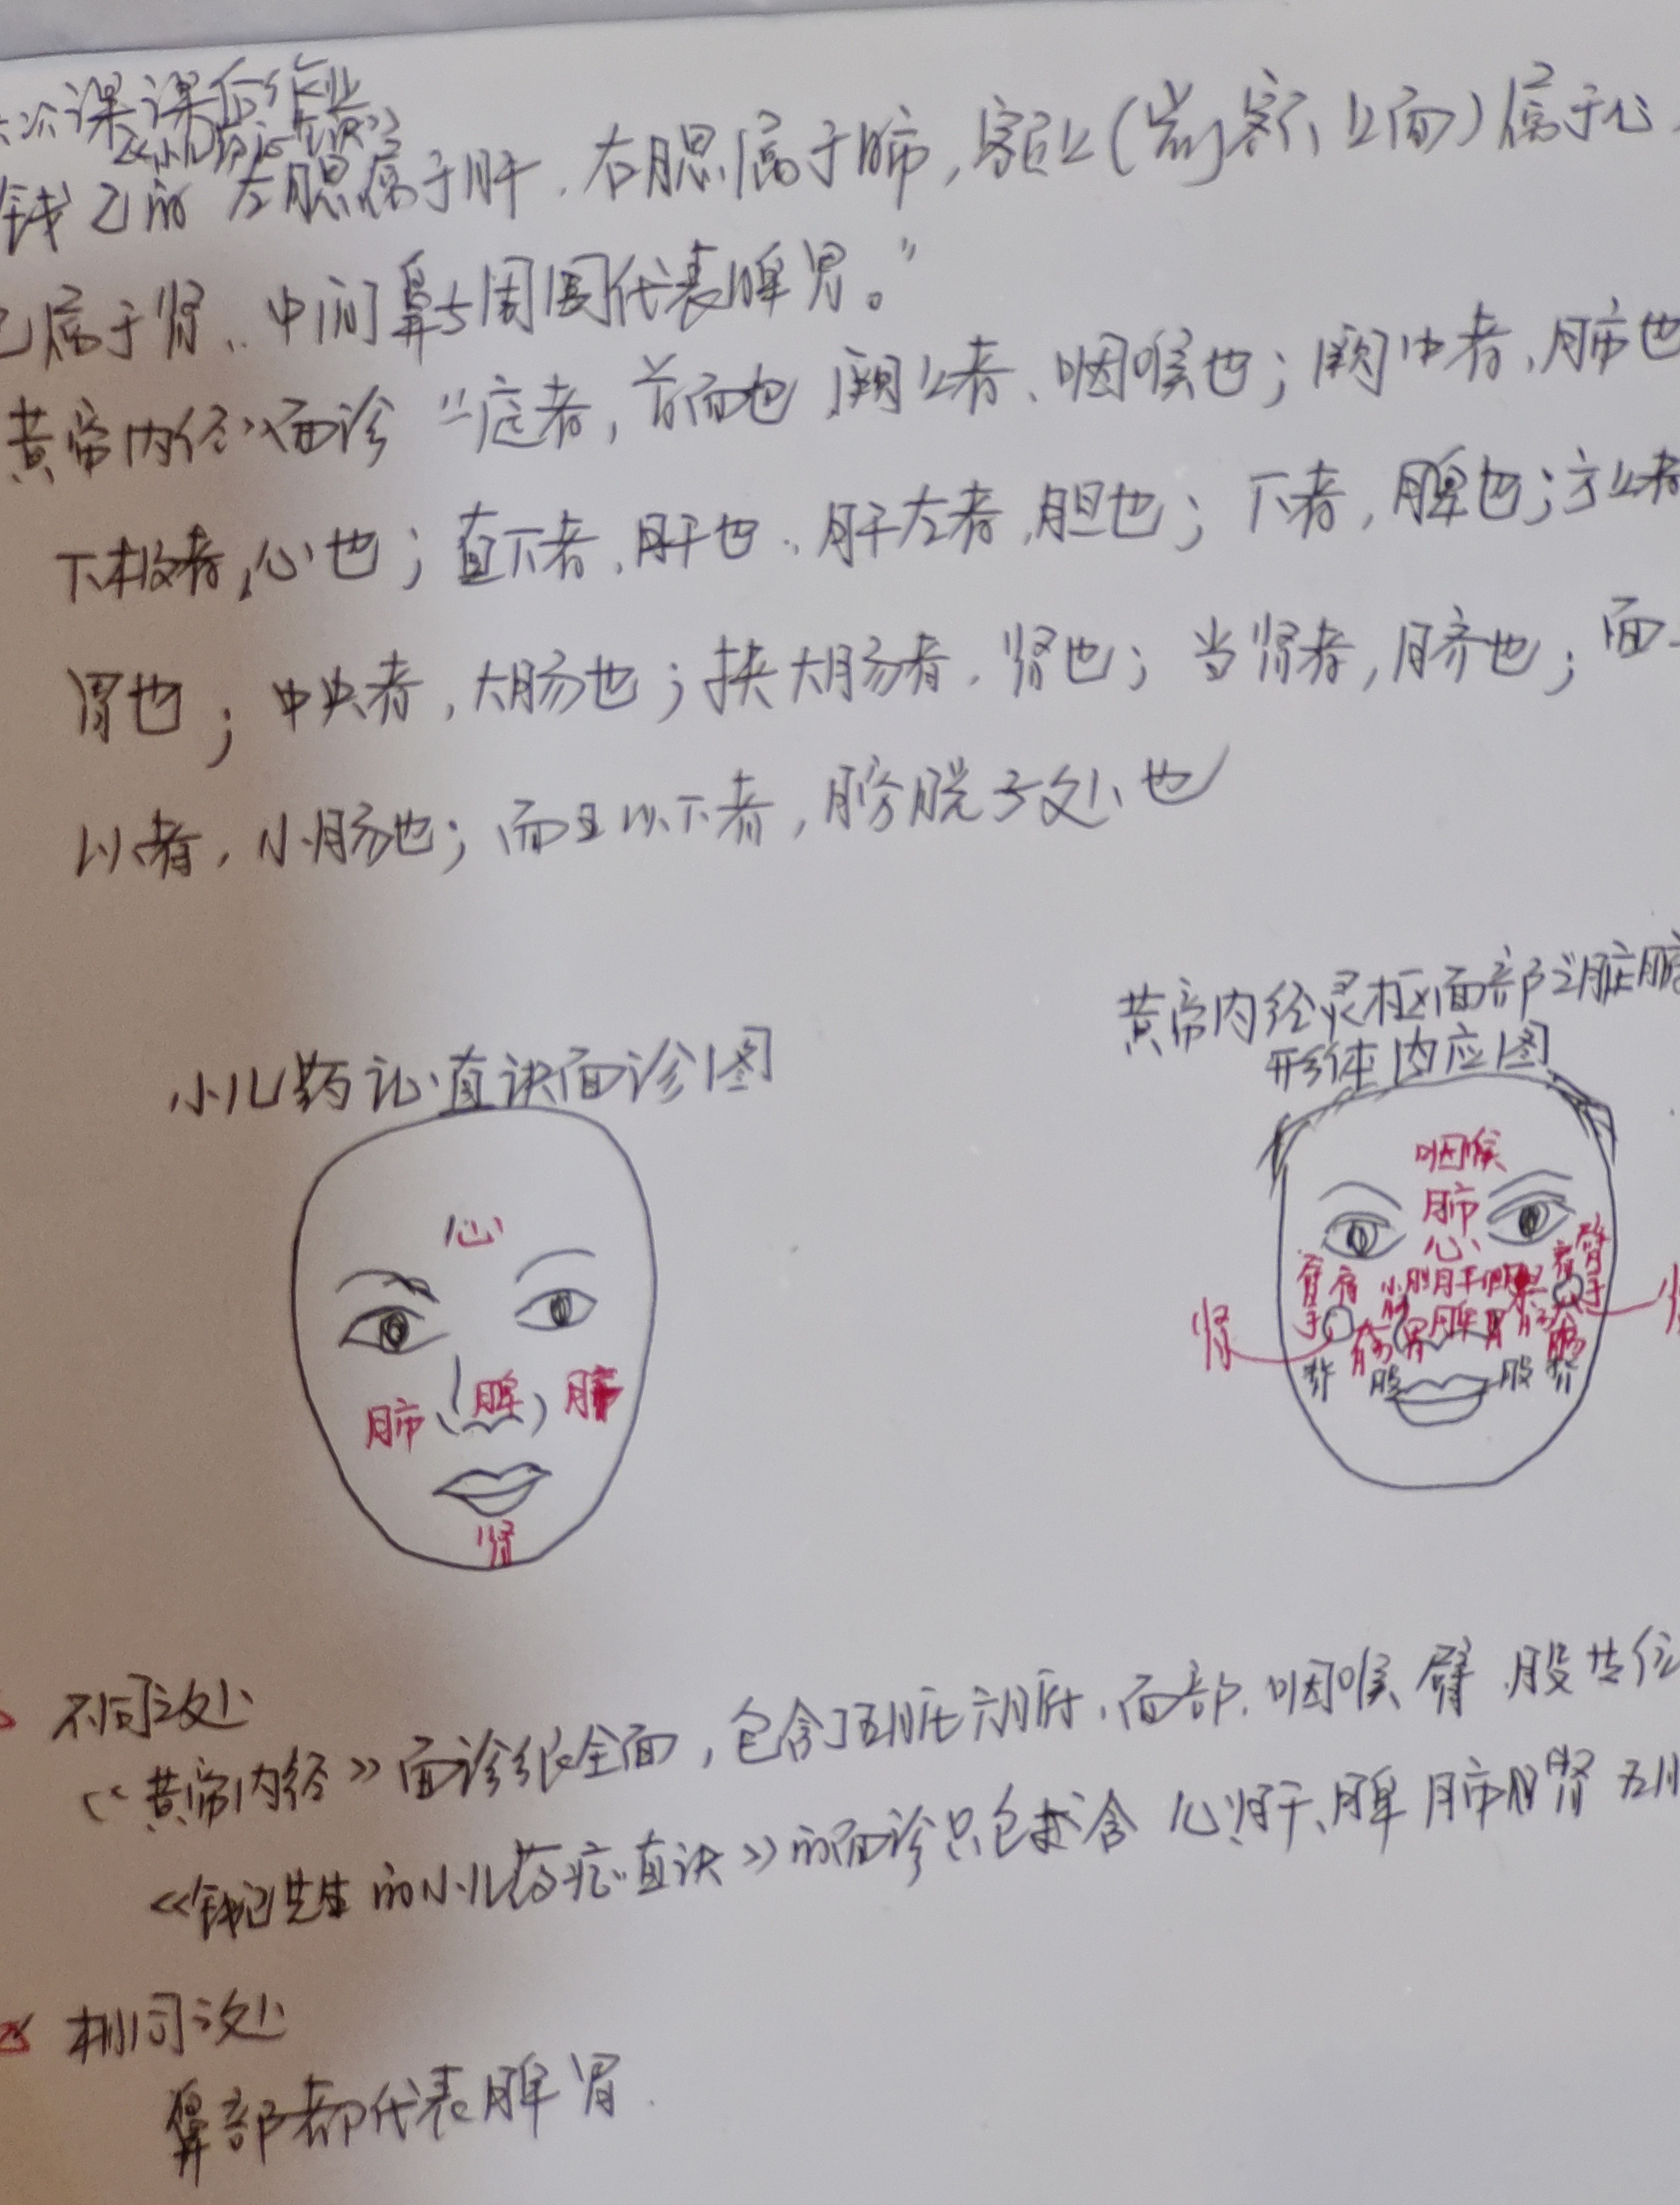 次课课后作业
《小儿药证直诀》
钱乙的 左腮属于肝、右腮属于肺，额上(岗)额上面)属于心
属于肾、中间鼻与周围代表脾胃。”
黄帝内经》面诊 “庭者，首面也 阙上者、咽喉也；阙中者、肺也
下极者，心也；直下者、肝也、肝左者，胆也；下者，脾也；方上者
胃也；中央者，大肠也；挟大肠者、肾也；当肾者，脐也；面
以者，小肠也；面王以下者，膀胱子处也
黄帝内经灵枢面部之脏腑
形体内应图
小儿药证直诀面诊图
心
肺 脾 肺
肾
咽喉
肺
心
臂 手 小肠 胆 肝 胆 臂 手
肾 大肠 胃 脾 胃 小肠 大肠
股 股
不同之处
《黄帝内经》面诊很全面，包含了五脏六腑、面部、咽喉 臂 股 等位
《钱乙先生的小儿药症直诀》的面诊只包含 心肝、脾 肺 肾 五
相同之处
鼻部都代表脾胃.